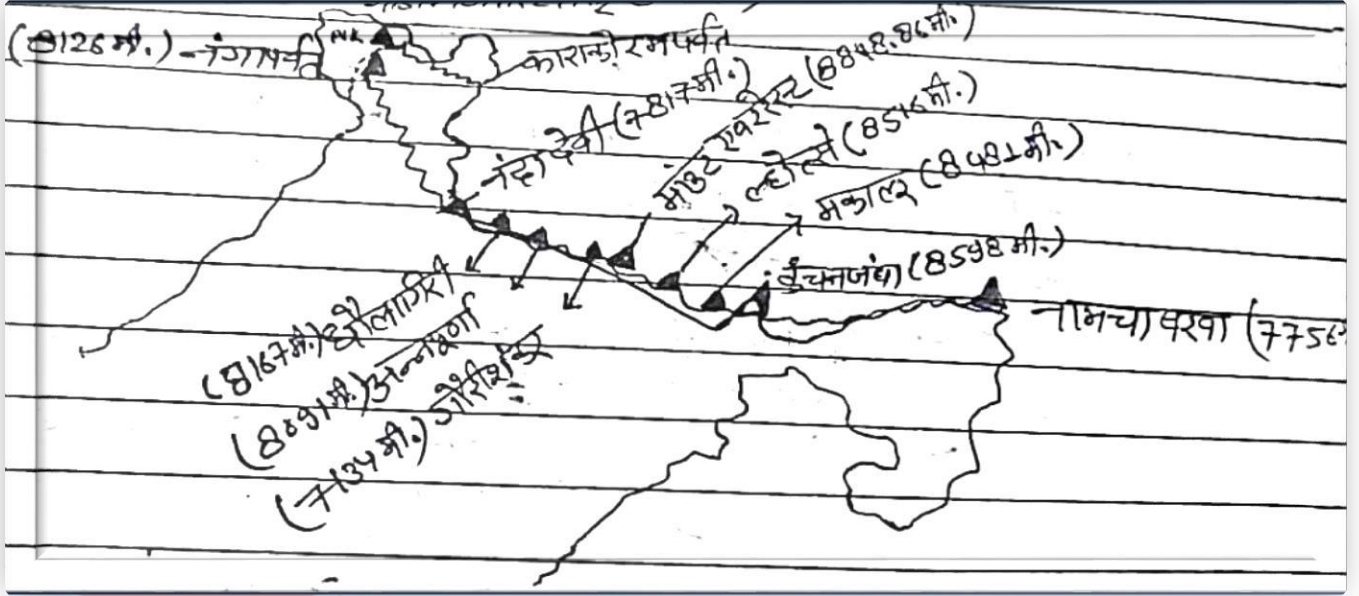 (8126 मी.) नंगापर्वत
काराकोरमपर्वत
नंदा देवी (7817मी.)
माउंट एवरेस्ट (8848.86मी.)
ल्होत्से (8516मी.)
मकालू (8481मी.)
कंचनजंघा (8598मी.)
नामचा बरवा (7756
(8167मी.) धौलागिरी
(8091मी.) अन्नपूर्णा
(7134मी.) गौरीशंकर